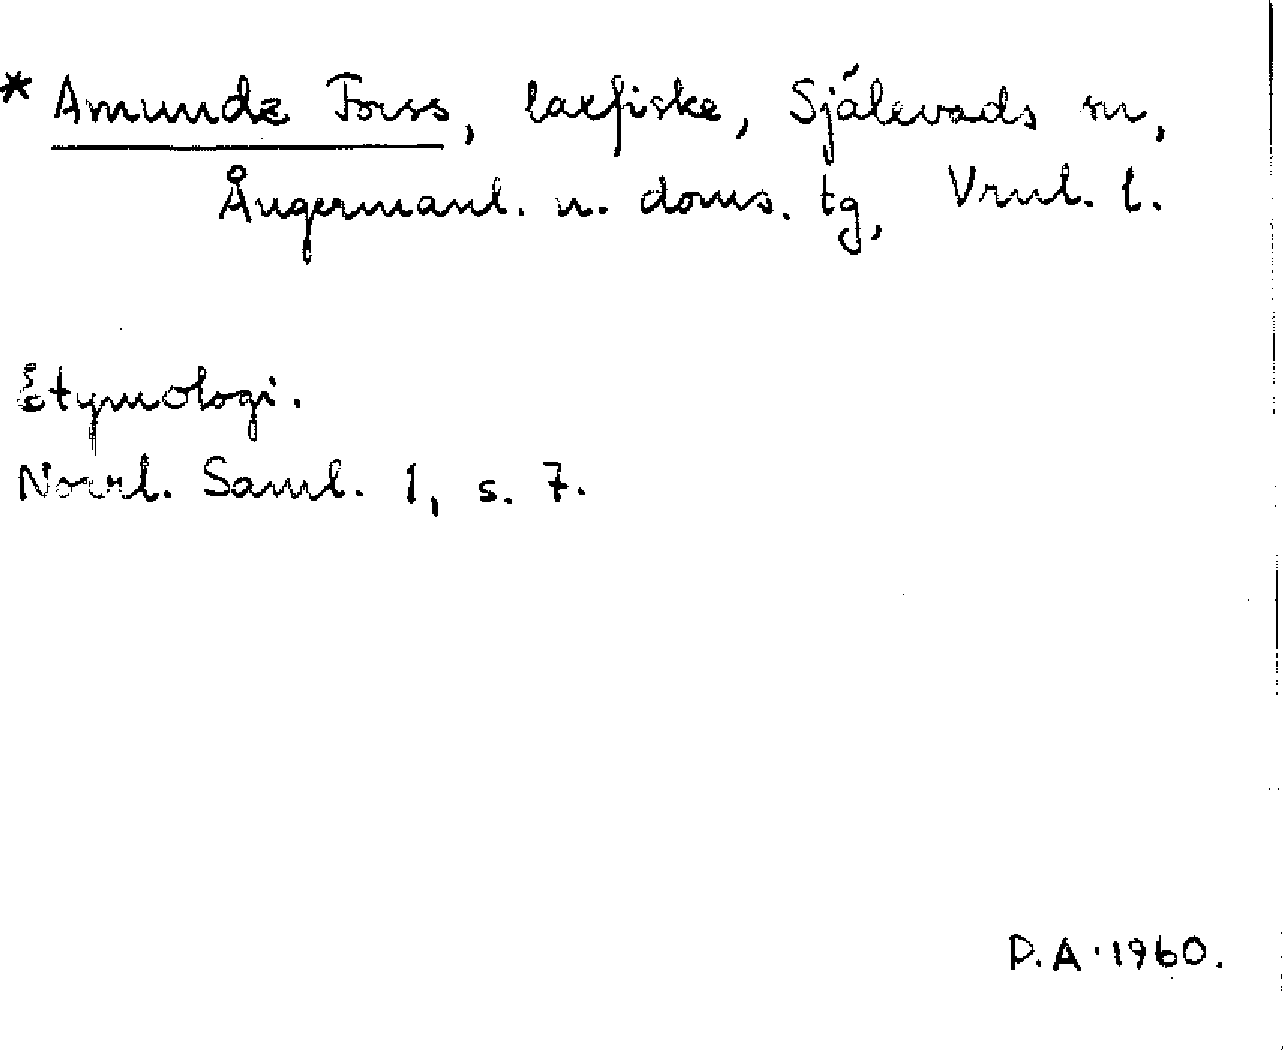 * Amundz Forss, laxfiske, Själevads sn,
Ångermanl. n. doms. tg, Vrnl. l.
Etymologi.
Norrl. Saml. 1, s. 7.
P.A. 1960.